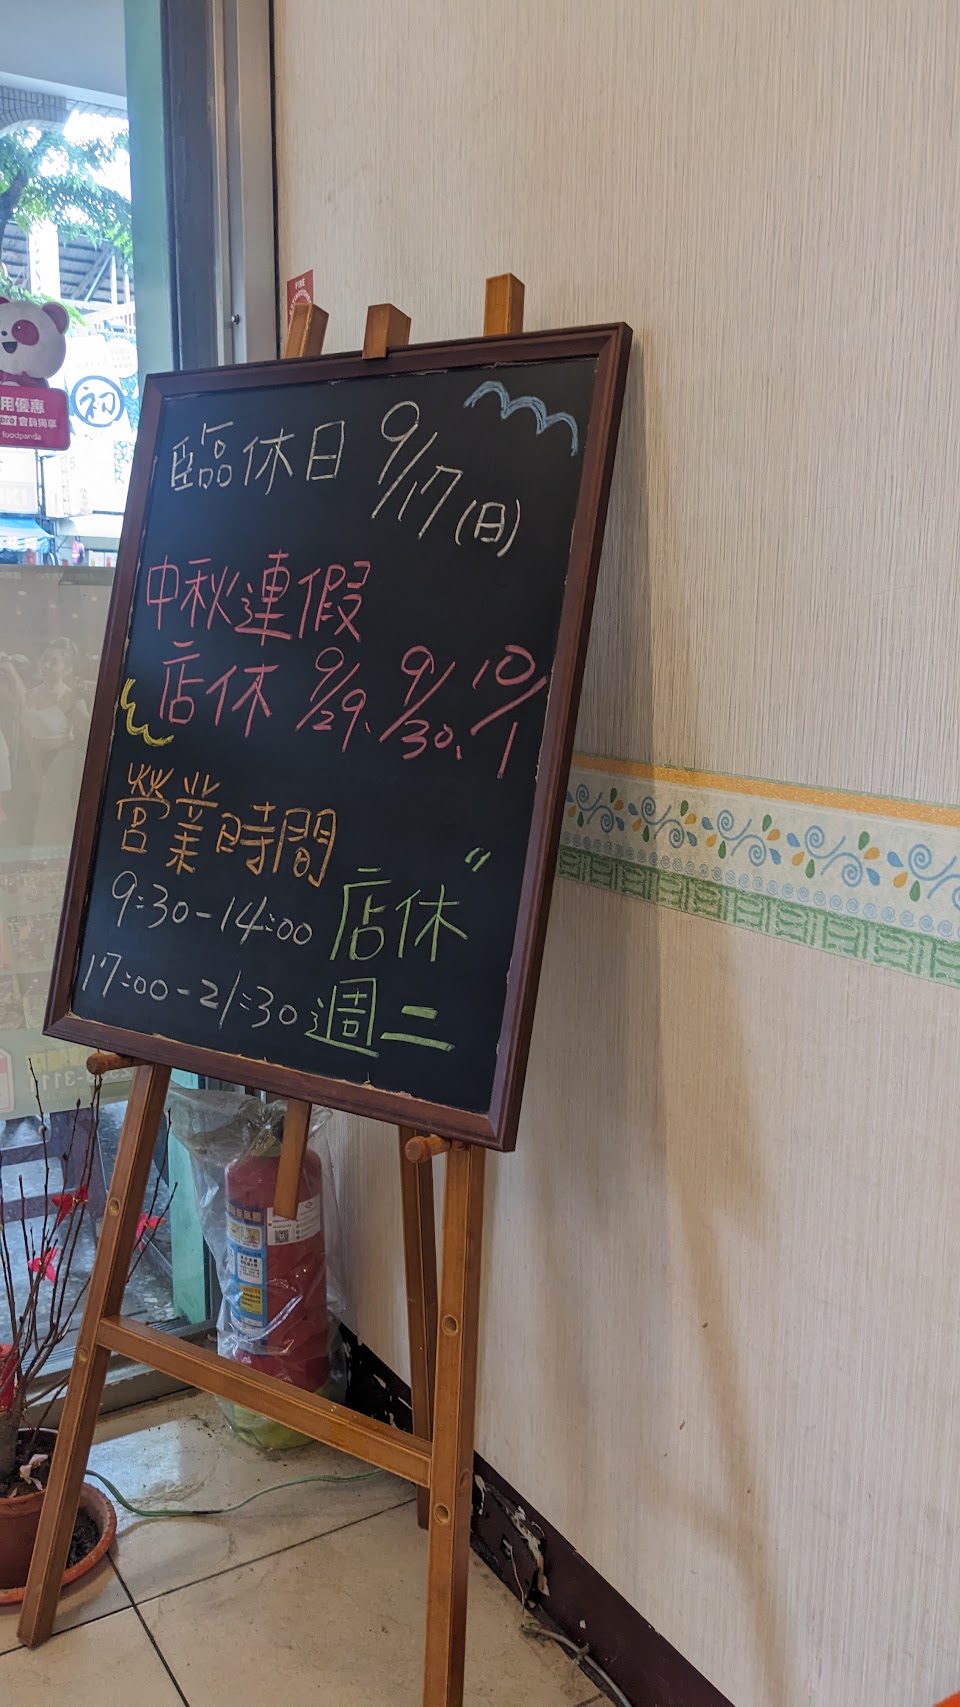 臨休日 9/17(日)
中秋連假
店休 9/29、9/30、10/1
營業時間
9:30-14:00
17:00-21:30
店休
週二
用優惠
pro 會員獨享
foodpanda
初
FIRE